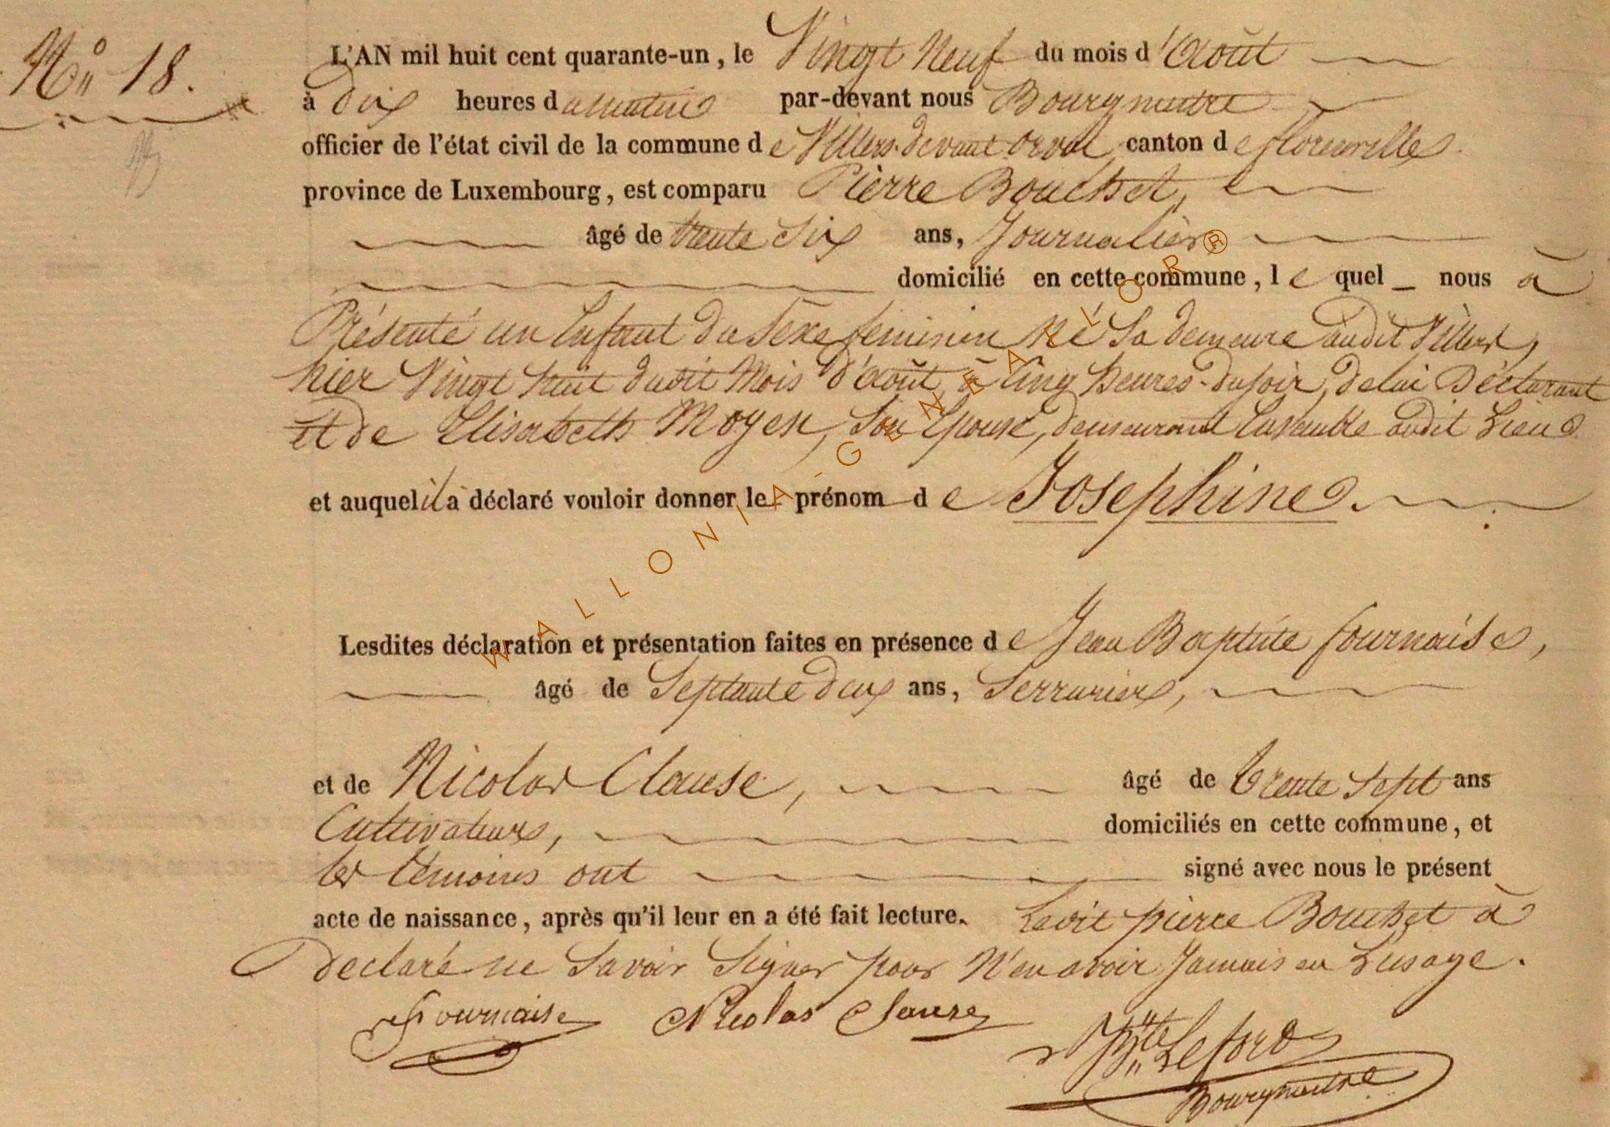 Nº 18.
L'AN mil huit cent quarante-un, le Vingt Neuf du mois d'Août
à dix heures du matin par-devant nous Bourgmestre
officier de l'état civil de la commune de Villers devant orval, canton de florenville
province de Luxembourg, est comparu Pierre Bouchet,
âgé de trente Six ans, Journalier
domicilié en cette commune, le quel _ nous à
Présenté un Enfant du Sexe feminin Né Sa demeure audit Villers,
hier Vingt huit dudit Mois d'août, à Cinq heures du soir, de lui Déclarant
et de Elisabeth Moyen, Son Epouse, demeurant Ensemble audit Lieu
et auquel il a déclaré vouloir donner le prénom de Josephine.
Lesdites déclaration et présentation faites en présence de Jean Baptiste fournaise,
âgé de Septante deux ans, Serrurier,
et de Nicolas Clause, âgé de trente Sept ans
Cultivateurs, domiciliés en cette commune, et
les témoins ont signé avec nous le présent
acte de naissance, après qu'il leur en a été fait lecture. Ledit pierre Bouchet à
Declaré ne Savoir Signer pour N'en avoir Jamais eu L'usage.
Fournaise Nicolas Clause
Bte Leford
Bourgmestre
WALLONIA-GENEALOR®